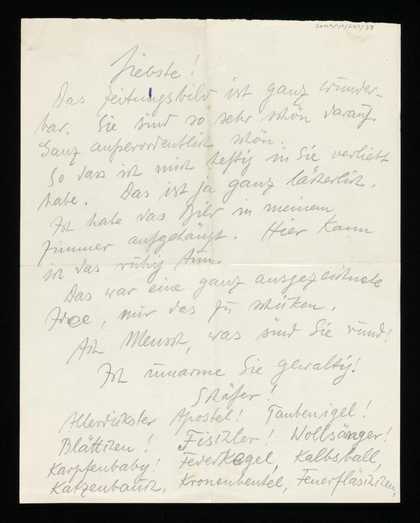 Liebste!
Das Zeitungsbild ist ganz wunder-
bar. Sie sind so sehr schön darauf.
Ganz außerordentlich schön.
So dass ich mich heftig in Sie verliebt
habe. Das ist ja ganz lästerlich.
Ich habe das Bild in meinem
Zimmer aufgehängt. Hier kann
ich das ruhig tun.
Das war eine ganz ausgezeichnete
Idee, mir das zu schicken.
Ach Mensch, was sind Sie rund!
Ich umarme Sie gewaltig!
Schäfer!
Allerdickster Apostel! Taubenigel!
Blättchen! Fisizler! Wollsänger!
Karpfenbaby! Federkegel, Kalbsball,
Katzenbauch, Kronenbeutel, Feuerfläschchen,